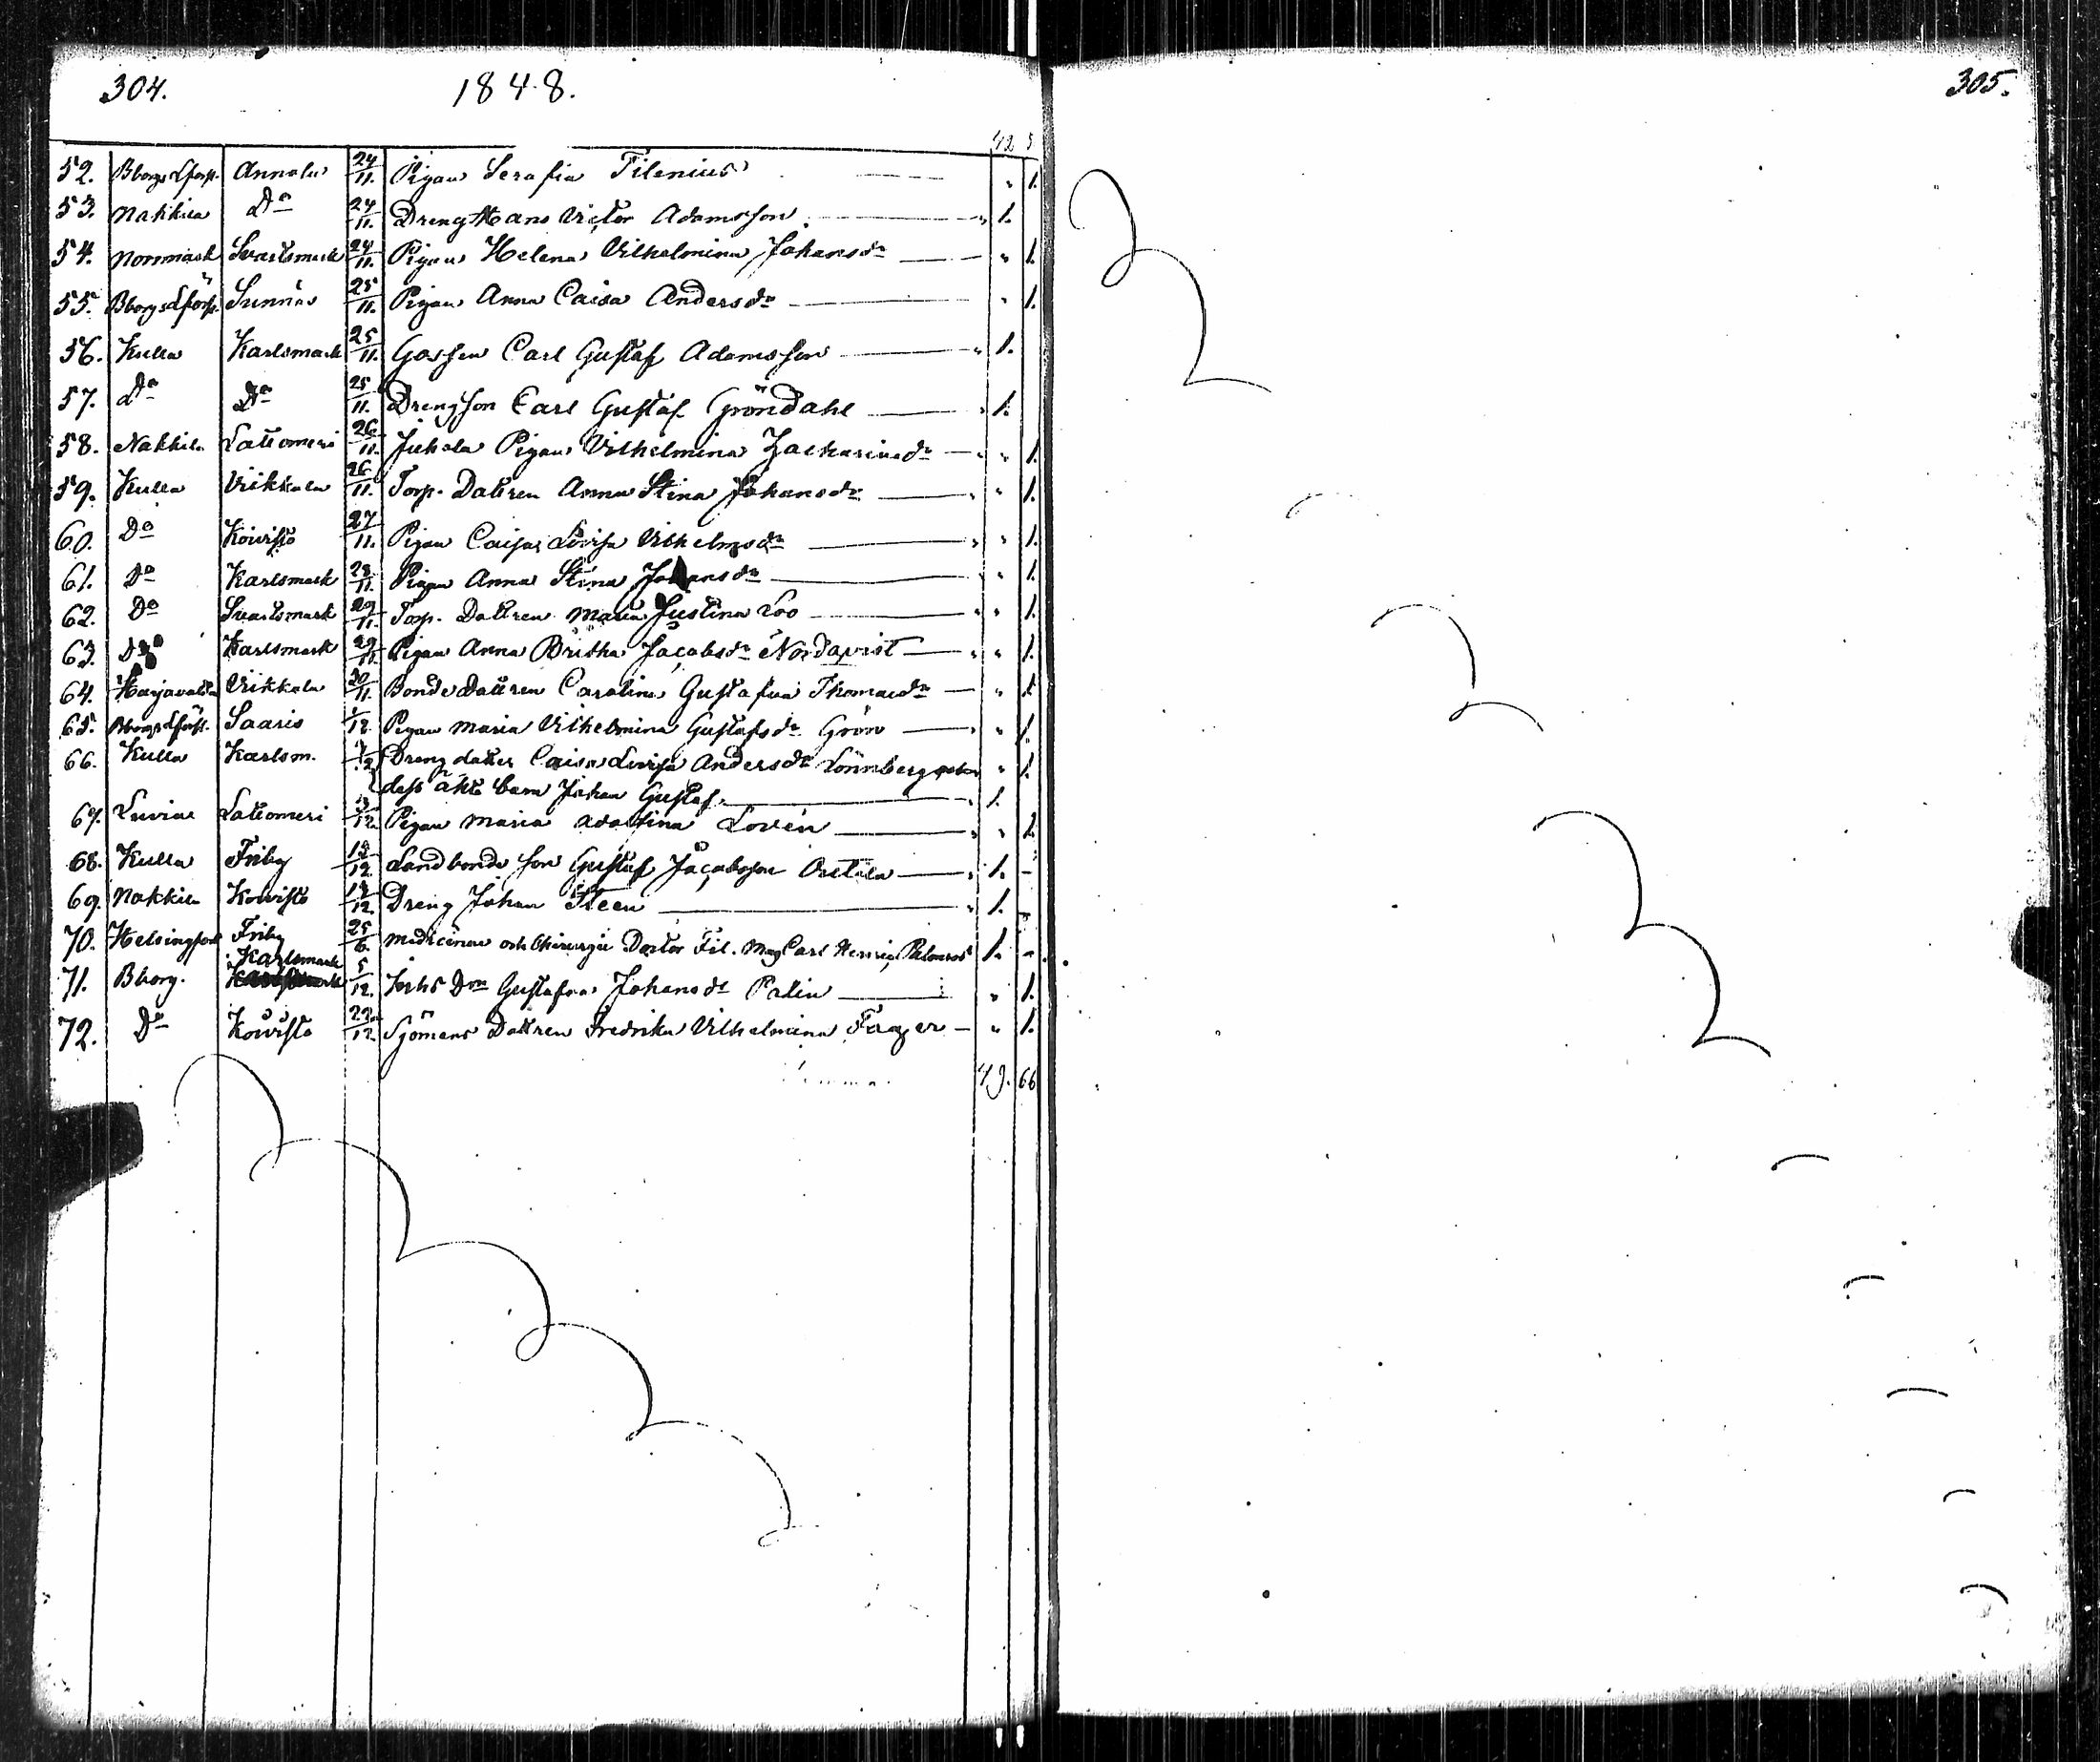 304.
1848.
305.
52. Bborgs Lförs. Annala 24/11. Pigan Serafia Filenius " 1.
53. Nakkila Do 24/11. Dreng Hans Victor Adamsson " 1.
54. Norrmark Svartsmark 24/11. Pigan Helena Vilhelmina Johansdr " 1.
55. Bborgs Lförs. Sunnäs 25/11. Pigan Anna Caisa Andersdr " 1.
56. Kulla Karlsmark 25/11. Gossen Carl Gustaf Adamsson " 1.
57. Do Do 25/11. Drengson Carl Gustaf Gröndahl " 1.
58. Nakkila Lattomeri 26/11. Juhola Pigan Vilhelmina Zachariædr " 1.
59. Kulla Vikkala 26/11. Torp. Dottren Anna Stina Johansdr " 1.
60. Do Koivisto 27/11. Pigan Caisa Lovisa Vilhelmsdr " 1.
61. Do Karlsmark 28/11. Pigan Anna Stina Johansdr " 1.
62. Do Svartsmark 29/11. Torp. Dottren Maria Justina Loo " 1.
63. Do Karlsmark 29/11. Pigan Anna Britha Jacobsdr Nordqvist " 1.
64. Harjavalta Vikkala 30/11. Bonde Dottren Carolina Gustafva Thomasdr " 1.
65. Bborgs Lförs. Saaris 1/12. Pigan Maria Vilhelmina Gustafsdr Grön " 1.
66. Kulla Karlsm. Dreng dotter Caisa Lovisa Andersdr Lönnberg " 1.
dess äkta barn Johan Gustaf " 1.
67. Luvia Lattomeri 13/12. Pigan Maria Lovén " 1.
68. Kulla Friby 13/12. Landbonde son Gustaf Jacobsson " 1. -
69. Nakkila Koivisto 12. Dreng Johan Steen " 1. -
70. Helsingfors Friby 25/6. Medicinæ och Chirurgiæ Doctor Fil. Mag Carl Henric 1. -
71. Bborg. Karlsmark 5/12. Dm Gustafva Johansdr Palin " 1.
72. Do Koivisto 22/12. Sjömans Dottren Fredrika Vilhelmina Fager " 1.
49. 66